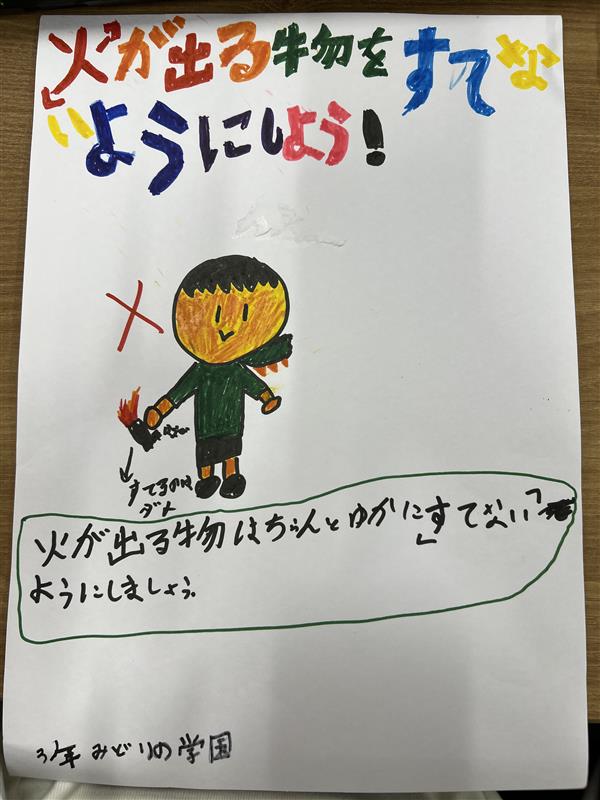 火が出る物をすてな
いようにしよう!
すてるのは
ダメ
火が出る物はちゃんとゆかに「すてない」
ようにしましょう。
3年 みどりの学園